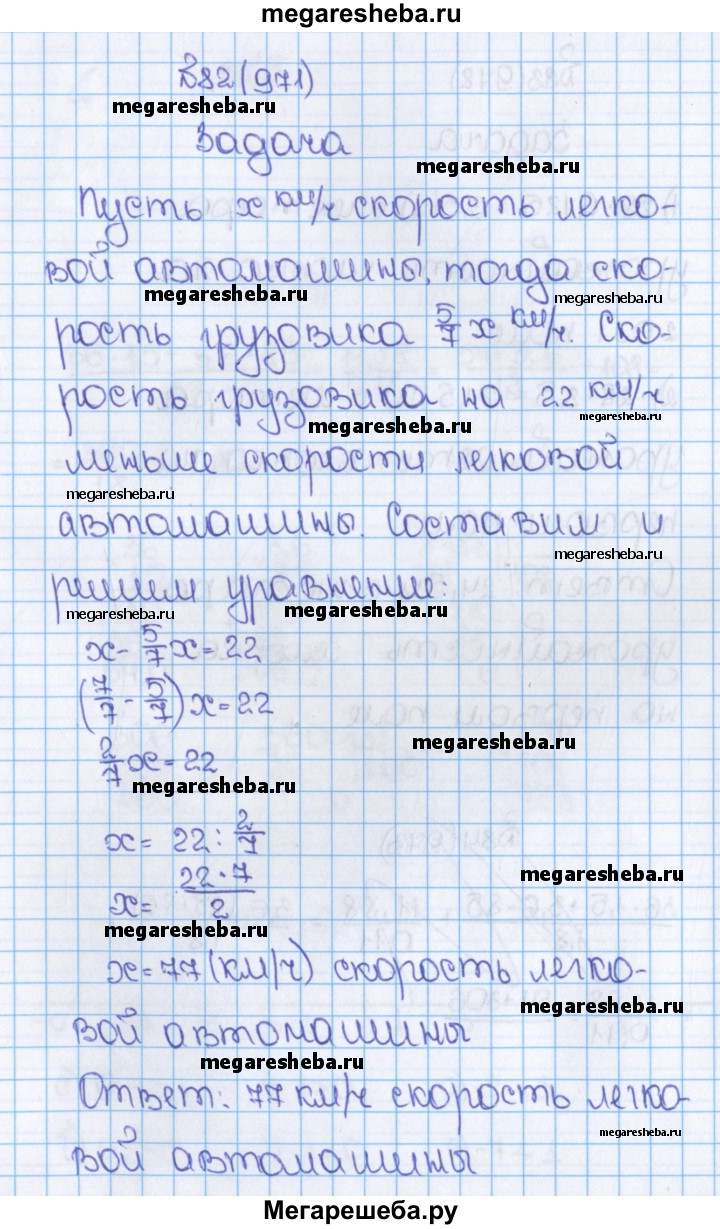 megaresheba.ru
№82(971)
megaresheba.ru
Задача
megaresheba.ru
Пусть x км/ч скорость легко-
вой автомашины, тогда ско-
megaresheba.ru
megaresheba.ru
рость грузовика 5/7 x км/ч. Ско-
рость грузовика на 22 км/ч
megaresheba.ru
megaresheba.ru
меньше скорости легковой
megaresheba.ru
автомашины. Составим и
megaresheba.ru
решим уравнение:
megaresheba.ru
megaresheba.ru
x - 5/7 x = 22
(7/7 - 5/7) x = 22
megaresheba.ru
2/7 x = 22
megaresheba.ru
x = 22 : 2/7
megaresheba.ru
x = 22 · 7 / 2
megaresheba.ru
x = 77 (км/ч) скорость легко-
вой автомашины
megaresheba.ru
Ответ: 77 км/ч скорость легко-
megaresheba.ru
вой автомашины
Мегарешеба.ру